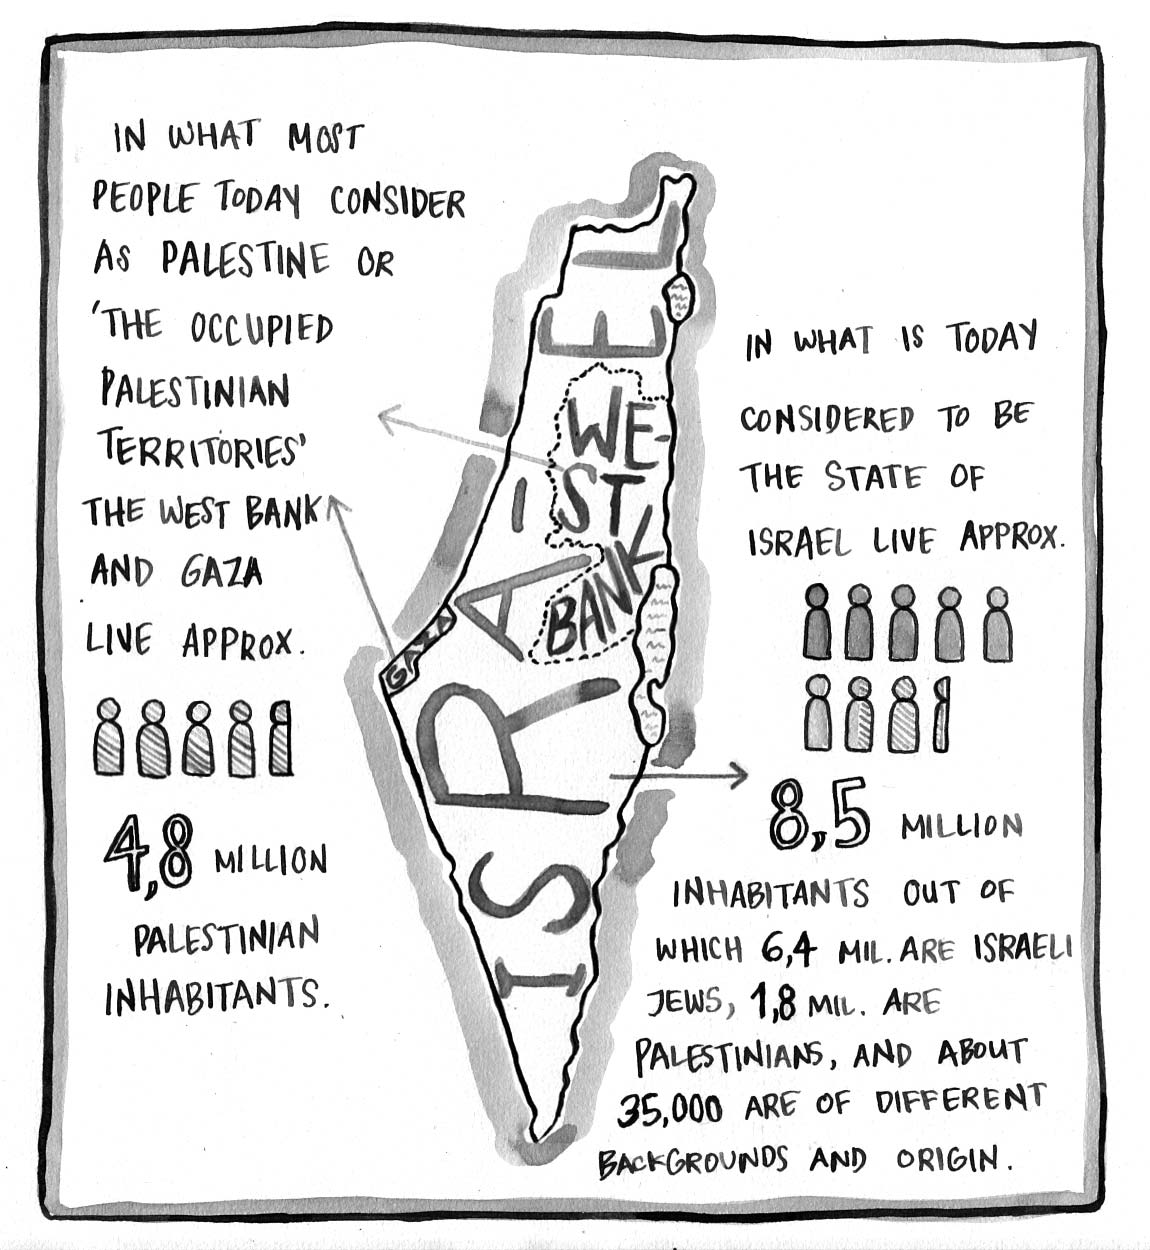 IN WHAT MOST
PEOPLE TODAY CONSIDER
AS PALESTINE OR
'THE OCCUPIED
PALESTINIAN
TERRITORIES'
THE WEST BANK
AND GAZA
LIVE APPROX.
4,8 MILLION
PALESTINIAN
INHABITANTS.
ISRAEL
WE-
ST
BANK
GAZA
IN WHAT IS TODAY
CONSIDERED TO BE
THE STATE OF
ISRAEL LIVE APPROX.
8,5 MILLION
INHABITANTS OUT OF
WHICH 6,4 MIL. ARE ISRAELI
JEWS, 1,8 MIL. ARE
PALESTINIANS, AND ABOUT
35,000 ARE OF DIFFERENT
BACKGROUNDS AND ORIGIN.